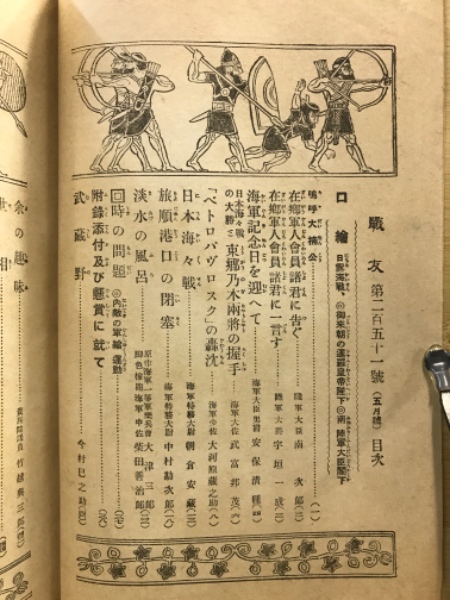 戰友 第二百五十一號（五月號）目次
口繪 日露海戰、◎御來朝の
嗚呼大楠公
在鄕軍人會員諸君に告ぐ 陸軍大臣 南 次郎（二）
在鄕軍人會員諸君に一言す 陸軍大將 宇垣一成（三）
海軍記念日を迎へて 海軍大臣男爵 安保淸種（四）
日本海々戰の大勝と 東鄕乃木兩將の握手 海軍大佐 武富邦茂（六）
「ペトロパヴロスク」の轟沈 海軍少佐 大利原藏之助（八）
日本海々戰 海軍特務大尉 朝倉安藏
旅順港口の閉塞 海軍特務大尉 中村勘次郎
淡水の風呂 大津三郎
柴田善治郎
時の問題 ◎內敵の軍縮運動
附錄添付及び懸賞に就て
武藏野 今村巳之助
余の趣味 竹越與三郎
世相